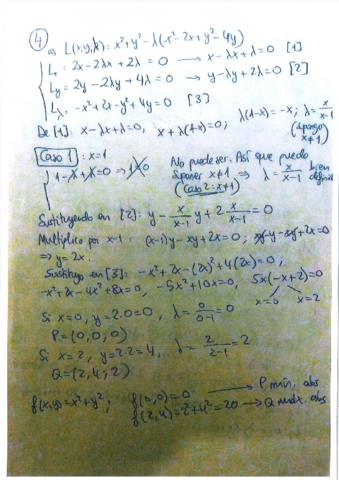 ④ a) L(x,y,λ) = x²+y² - λ(x²-2x+y²-4y)
Lₓ = 2x-2λx+2λ = 0 → x-λx+λ=0 [1]
Ly = 2y-2λy+4λ = 0 → y-λy+2λ=0 [2]
Lλ = -x²+2x-y²+4y = 0 [3]
De [1]: x-λx+λ=0, x+λ(1-x)=0; λ(1-x)=-x; λ = x/(x-1)
(supongo x≠1)
Caso 1: x=1
1-λ+λ=0 ⇒ 1=0
No puede ser. Así que puedo
suponer x≠1 ⇒ λ = x/(x-1) bien
(Caso 2: x≠1)
Sustituyendo en [2]: y - x/(x-1) y + 2 x/(x-1) = 0
Multiplico por x-1: (x-1)y - xy + 2x = 0; xy-y-xy+2x=0
⇒ y=2x.
Sustituyo en [3]: -x²+2x-(2x)²+4(2x)=0;
-x²+2x-4x²+8x=0, -5x²+10x=0, 5x(-x+2)=0
x=0 x=2
Si x=0, y=2·0=0, λ = 0/(0-1) = 0
P=(0,0;0)
Si x=2, y=2·2=4, λ = 2/(2-1) = 2
Q=(2,4;2)
f(x,y)=x²+y²; f(0,0)=0 → P mín. abs
f(2,4)=2²+4²=20 → Q máx. abs